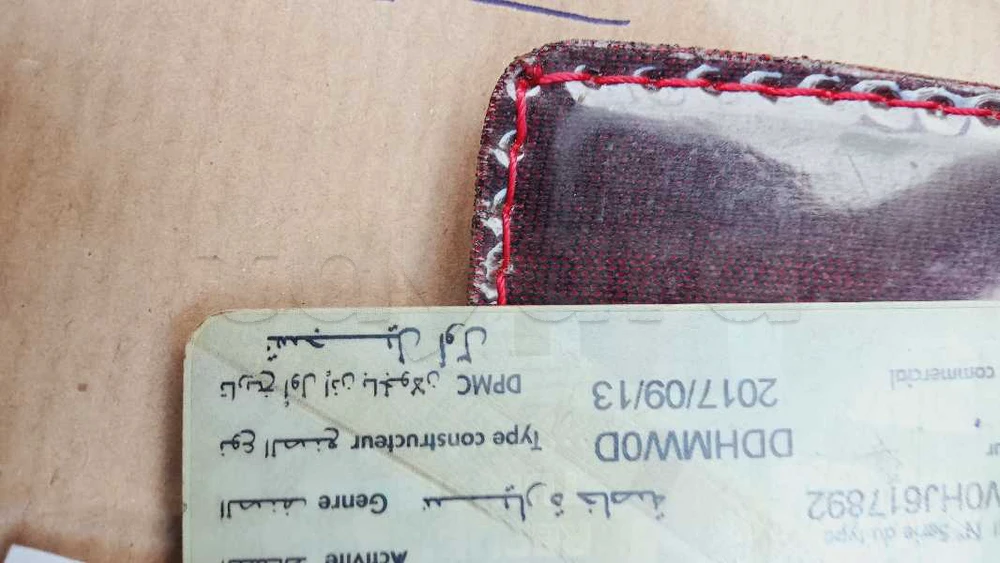 Activité
N° Série du type
VOHJ617892 سيارة خاصة Genre الصنف
DDHMWOD Type constructeur نوع الصنع
commercial 2017/09/13 DPMC تاريخ أول إذن بالجولان
تسجيل أول